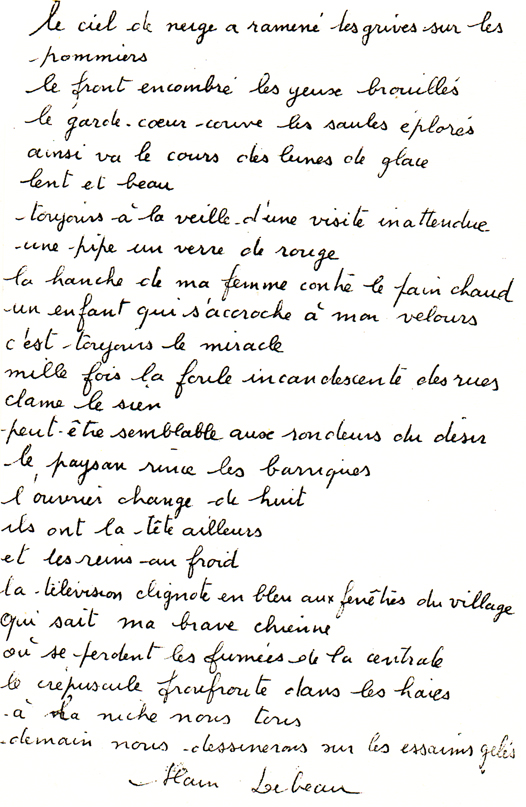 le ciel de neige a ramené les grives sur les
pommiers
le front encombré les yeux brouillés
le garde-cœur couve les saules éplorés
ainsi va le cours des lunes de glace
lent et beau
toujours à la veille d'une visite inattendue
une pipe un verre de rouge
la hanche de ma femme contre le pain chaud
un enfant qui s'accroche à mon velours
c'est toujours le miracle
mille fois la foule incandescente des rues
clame le sien
peut-être semblable aux rondeurs du désir
le paysan rince les barriques
l'ouvrier change de huit
ils ont la tête ailleurs
et les reins au froid
la télévision clignote en bleu aux fenêtres du village
qui sait ma brave chienne
où se perdent les fumées de la centrale
le crépuscule froufroute dans les haies
à la niche nous tous
demain nous dessinerons sur les essaims gelés
Alain Lebeau